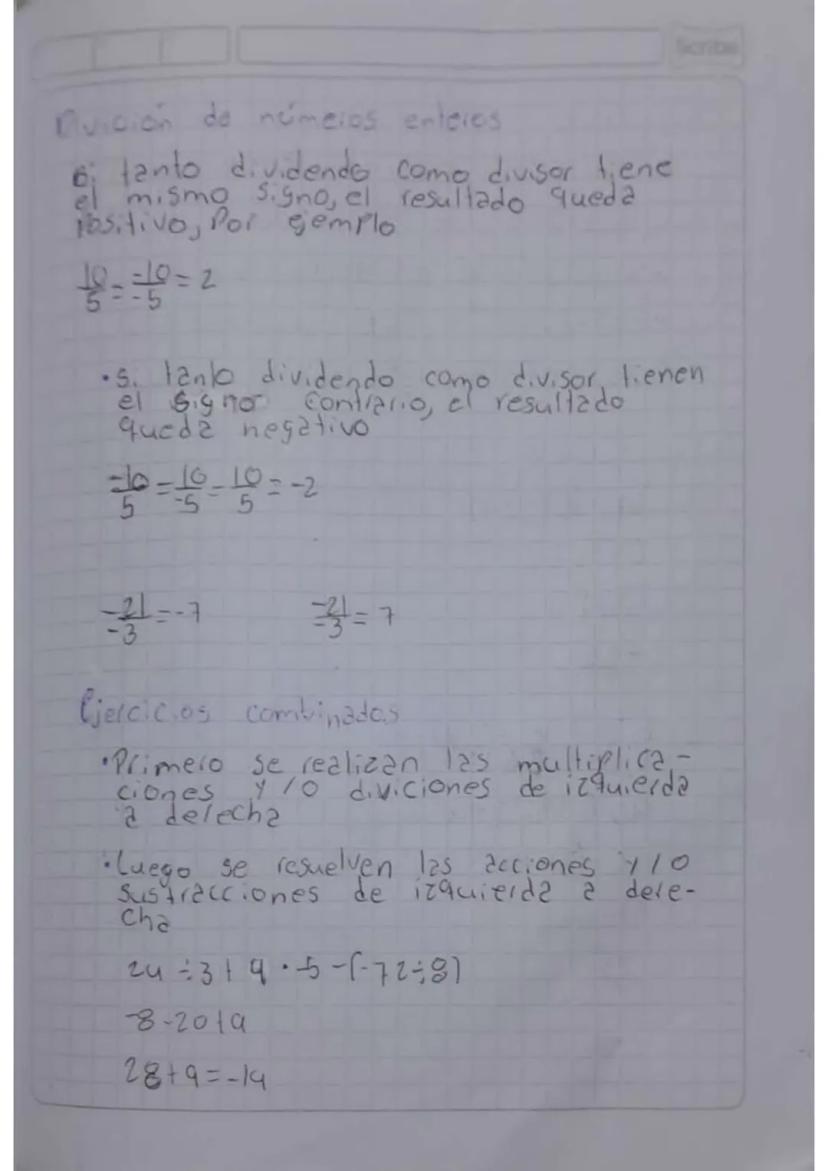 Scribe
División de números enteros
Si tanto dividendo como divisor tiene
el mismo signo, el resultado queda
positivo, Por ejemplo
10/5 = -10/-5 = 2
• Si tanto dividendo como divisor tienen
el signo contrario, el resultado
queda negativo
-10/5 = 10/-5 - 10/5 = -2
-21/-3 = -7 -21/-3 = 7
Ejercicios combinados
• Primero se realizan las multiplica-
ciones y/o diviciones de izquierda
a derecha
• Luego se resuelven las acciones y/o
sustracciones de izquierda a dere-
cha
24 ÷ 3 + 4 · -5 - (-72 ÷ 8)
-8 - 20 + 9
28 + 9 = -19